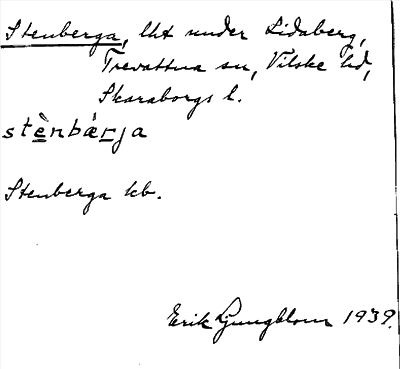 Stenberga, lht under Lidaberg,
Trevattna sn, Vilske hd,
Skaraborgs l.
stènbærja
Stenberga kb.
Erik Ljungblom 1939.